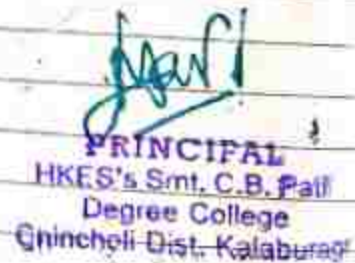 PRINCIPAL
HKES's Smt. C.B. Patil
Degree College
Chincholi Dist. Kalaburagi